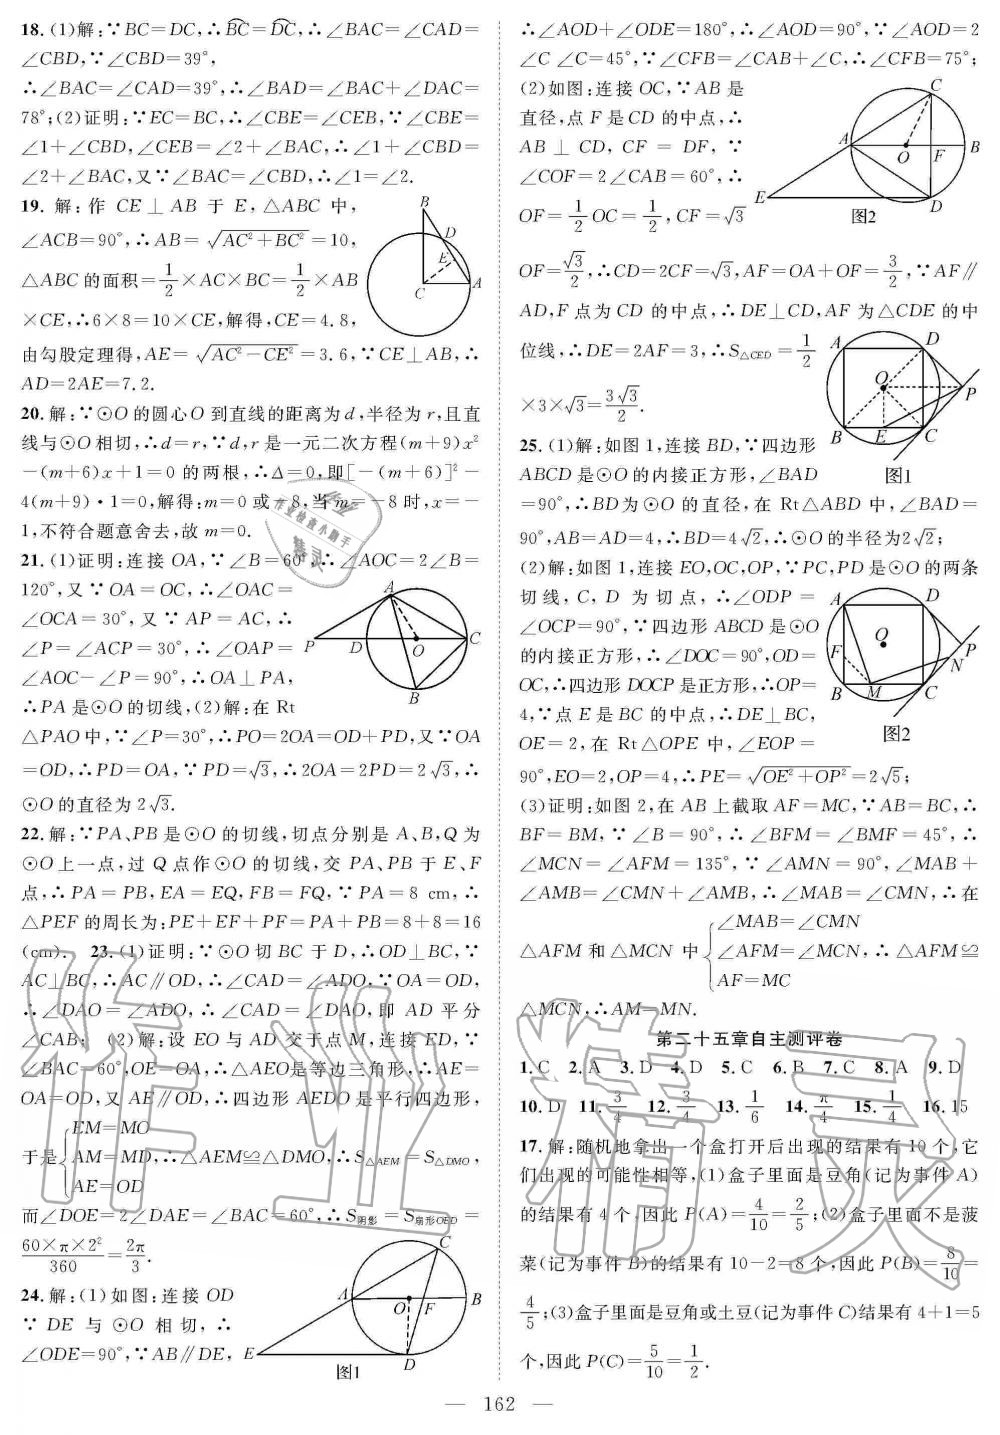 18. (1)解:∵BC=DC,∴B͡C=D͡C,∴∠BAC=∠CAD=
∠CBD,∵∠CBD=39°,
∴∠BAC=∠CAD=39°,∴∠BAD=∠BAC+∠DAC=
78°;(2)证明:∵EC=BC,∴∠CBE=∠CEB,∵∠CBE=
∠1+∠CBD,∠CEB=∠2+∠BAC,∴∠1+∠CBD=
∠2+∠BAC,又∵∠BAC=∠CBD,∴∠1=∠2.
19. 解:作 CE⊥AB 于 E,△ABC 中,
∠ACB=90°,∴AB=√(AC²+BC²)=10,
△ABC的面积=1/2×AC×BC=1/2×AB
×CE,∴6×8=10×CE,解得,CE=4.8,
由勾股定理得,AE=√(AC²-CE²)=3.6,∵CE⊥AB,∴
AD=2AE=7.2.
B
D
E
C
A
20. 解:∵⊙O的圆心O到直线的距离为d,半径为r,且直
线与⊙O相切,∴d=r,∵d,r是一元二次方程(m+9)x²
-(m+6)x+1=0的两根,∴Δ=0,即[-(m+6)]²-
4(m+9)·1=0,解得:m=0或-8,当m=-8时,x=-
1,不符合题意舍去,故m=0.
21. (1)证明:连接OA,∵∠B=60°,∴∠AOC=2∠B=
120°,又∵OA=OC,∴∠OAC=
∠OCA=30°,又∵AP=AC,∴
∠P=∠ACP=30°,∴∠OAP=
∠AOC-∠P=90°,∴OA⊥PA,
∴PA是⊙O的切线,(2)解:在Rt
△PAO中,∵∠P=30°,∴PO=2OA=OD+PD,又∵OA
=OD,∴PD=OA,∵PD=√3,∴2OA=2PD=2√3,∴
⊙O的直径为2√3.
A
P
D
O
C
B
22. 解:∵PA、PB是⊙O的切线,切点分别是A、B,Q为
⊙O上一点,过Q点作⊙O的切线,交PA、PB于E、F
点,∴PA=PB,EA=EQ,FB=FQ,∵PA=8 cm,∴
△PEF的周长为:PE+EF+PF=PA+PB=8+8=16
(cm). 23. (1)证明:∵⊙O切BC于D,∴OD⊥BC,∵
AC⊥BC,∴AC∥OD,∴∠CAD=∠ADO,∵OA=OD,
∴∠DAO=∠ADO,∴∠CAD=∠DAO,即AD平分
∠CAB; (2)解:设EO与AD交于点M,连接ED,∵
∠BAC=60°,OE=OA,∴△AEO是等边三角形,∴AE=
OA=OD,又AE∥OD,∴四边形AEDO是平行四边形,
于是{EM=MO
AM=MD,∴△AEM≌△DMO,∴S△AEM=S△DMO,
AE=OD
而∠DOE=2∠DAE=∠BAC=60°,∴S阴影=S扇形OED=
60×π×2²/360=2π/3.
24. 解:(1)如图:连接OD
∵DE与⊙O相切,∴
∠ODE=90°,∵AB∥DE,
C
A
O
F
B
E
D
图1
∴∠AOD+∠ODE=180°,∴∠AOD=90°,∵∠AOD=2
∠C ∠C=45°,∵∠CFB=∠CAB+∠C,∴∠CFB=75°;
(2)如图:连接OC,∵AB是
直径,点F是CD的中点,∴
AB⊥CD,CF=DF,∵
∠COF=2∠CAB=60°,∴
OF=1/2 OC=1/2,CF=√3
OF=√3/2,∴CD=2CF=√3,AF=OA+OF=3/2,∵AF∥
AD,F点为CD的中点,∴DE⊥CD,AF为△CDE的中
位线,∴DE=2AF=3,∴S△CED=1/2
×3×√3=3√3/2.
C
A
O
F
B
E
D
图2
25. (1)解:如图1,连接BD,∵四边形
ABCD是⊙O的内接正方形,∠BAD
=90°,∴BD为⊙O的直径,在Rt△ABD中,∠BAD=
90°,AB=AD=4,∴BD=4√2,∴⊙O的半径为2√2;
A
D
O
P
B
E
C
图1
(2)解:如图1,连接EO,OC,OP,∵PC,PD是⊙O的两条
切线,C,D为切点,∴∠ODP=
∠OCP=90°,∵四边形ABCD是⊙O
的内接正方形,∴∠DOC=90°,OD=
OC,∴四边形DOCP是正方形,∴OP=
4,∵点E是BC的中点,∴DE⊥BC,
OE=2,在Rt△OPE中,∠EOP=
90°,EO=2,OP=4,∴PE=√(OE²+OP²)=2√5;
A
D
O
F
P
N
B
M
C
图2
(3)证明:如图2,在AB上截取AF=MC,∵AB=BC,∴
BF=BM,∵∠B=90°,∴∠BFM=∠BMF=45°,∴
∠MCN=∠AFM=135°,∵∠AMN=90°,∠MAB+
∠AMB=∠CMN+∠AMB,∴∠MAB=∠CMN,∴在
△AFM和△MCN中{∠MAB=∠CMN
∠AFM=∠MCN,∴△AFM≌
AF=MC
△MCN,∴AM=MN.
第二十五章自主测评卷
1. C 2. A 3. D 4. D 5. C 6. B 7. C 8. A 9. D
10. D 11. 3/4 12. 3/4 13. 1/6 14. π/4 15. 1/4 16. 15
17. 解:随机地拿出一个盒打开后出现的结果有10个,它
们出现的可能性相等,(1)盒子里面是豆角(记为事件A)
的结果有4个,因此P(A)=4/10=2/5;(2)盒子里面不是菠
菜(记为事件B)的结果有10-2=8个,因此P(B)=8/10=
4/5;(3)盒子里面是豆角或土豆(记为事件C)结果有4+1=5
个,因此P(C)=5/10=1/2.
— 162 —
作业检查小助手
精灵
作业精灵